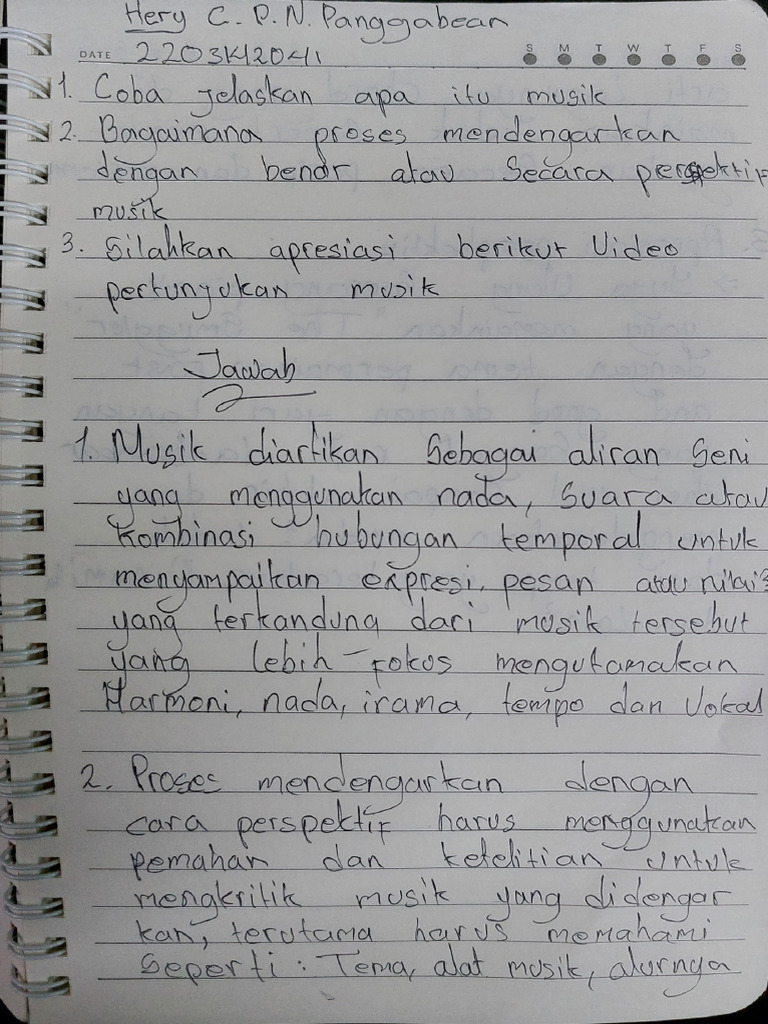 Hery C. P. N. Panggabean
DATE 2203142041
S M T W T F S
1. Coba jelaskan apa itu musik
2. Bagaimana proses mendengarkan
dengan benar atau Secara perspektif
musik
3. Silahkan apresiasi berikut Video
pertunjukan musik
Jawab
1. Musik diartikan Sebagai aliran Seni
yang menggunakan nada, Suara atau
Kombinasi hubungan temporal untuk
mengampaikan expresi, pesan atau nilai²
yang terkandung dari musik tersebut
yang lebih fokus mengutamakan
Harmoni, nada, irama, tempo dan Vokal
2. Proses mendengarkan dengan
cara perspektif harus menggunakan
pemahan dan ketelitian untuk
mengkritik musik yang didengar
kan, terutama harus memahami
Seperti : Tema, alat musik, alurnya